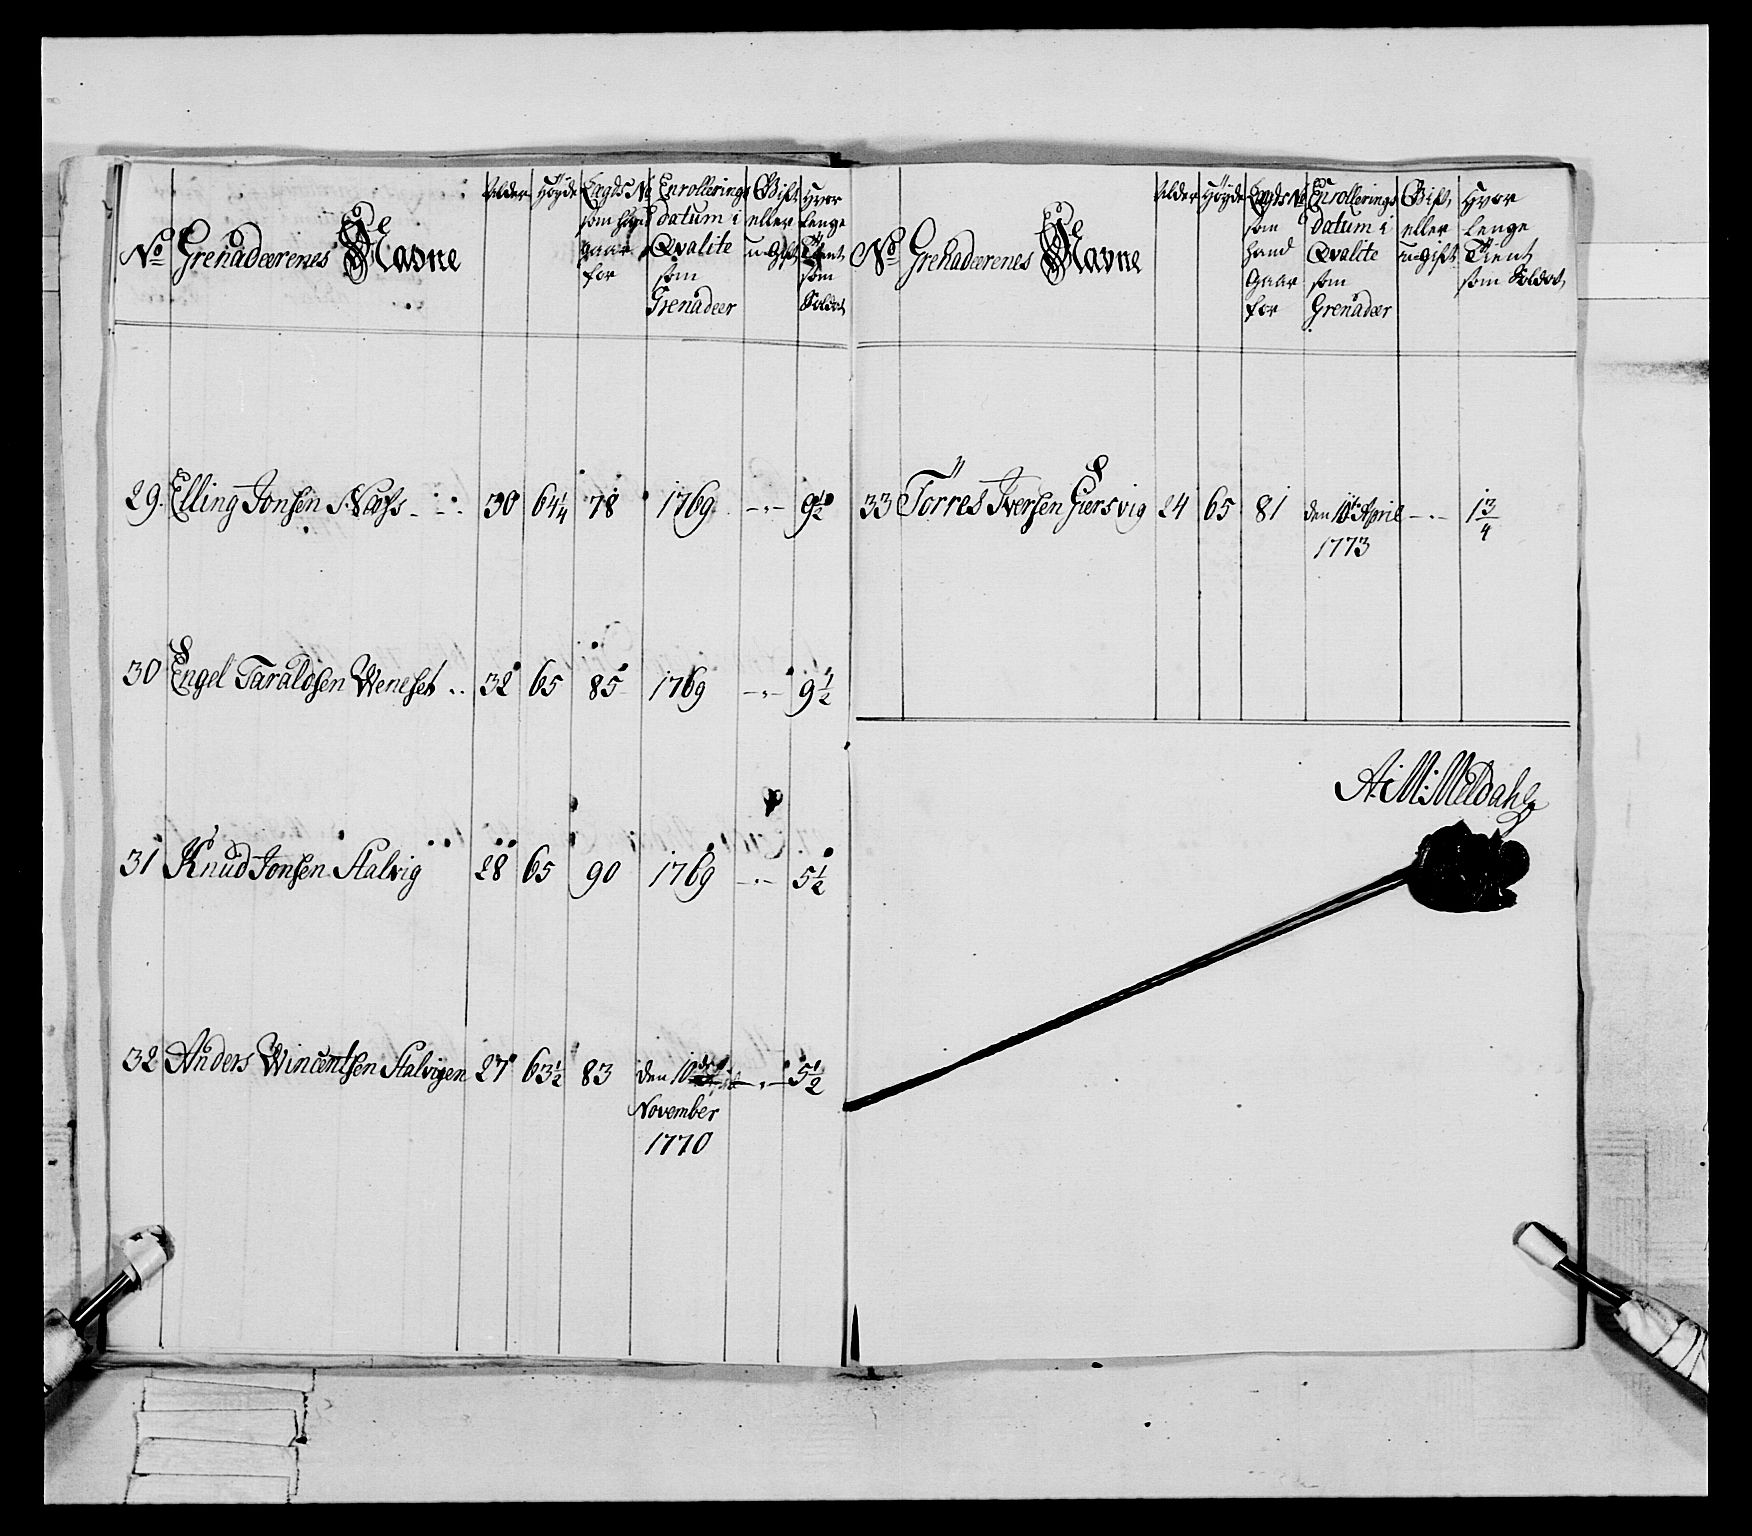 No Grenadeerenes Navne
Alder
Høyde
Lagds No
som hand
gaar
for
Enrollerings
datum i
Qvalite
som
Grenadeer
Gift
eller
u-gift
Hvor
lenge
Tient
som
Soldat
29. Elling Jonsen Næss 30 64 1/4 78 1769 -.- 9 1/2
30 Engel Taraldsen Weneset .. 32 65 85 1769 -.- 9 1/2
31 Knud Jonsen Aalvig 28 65 90 1769 -.- 5 1/2
32 Anders Wincentsen Aalvigen 27 63 1/2 83 den 10de -.- 5 1/2
November
1770
No Grenadeerenes Navne
Alder
Høyde
Lagds No
som
hand
gaar
for
Enrollerings
datum i
Qvalite
som
Grenadær
Gift,
eller
u-gift
Hvor
lenge
Tient
som Soldat,
33 Törres Iversen Giersvig 24 65 81 den 10de April -.- 1 3/4
1773
A: M: Meldahl